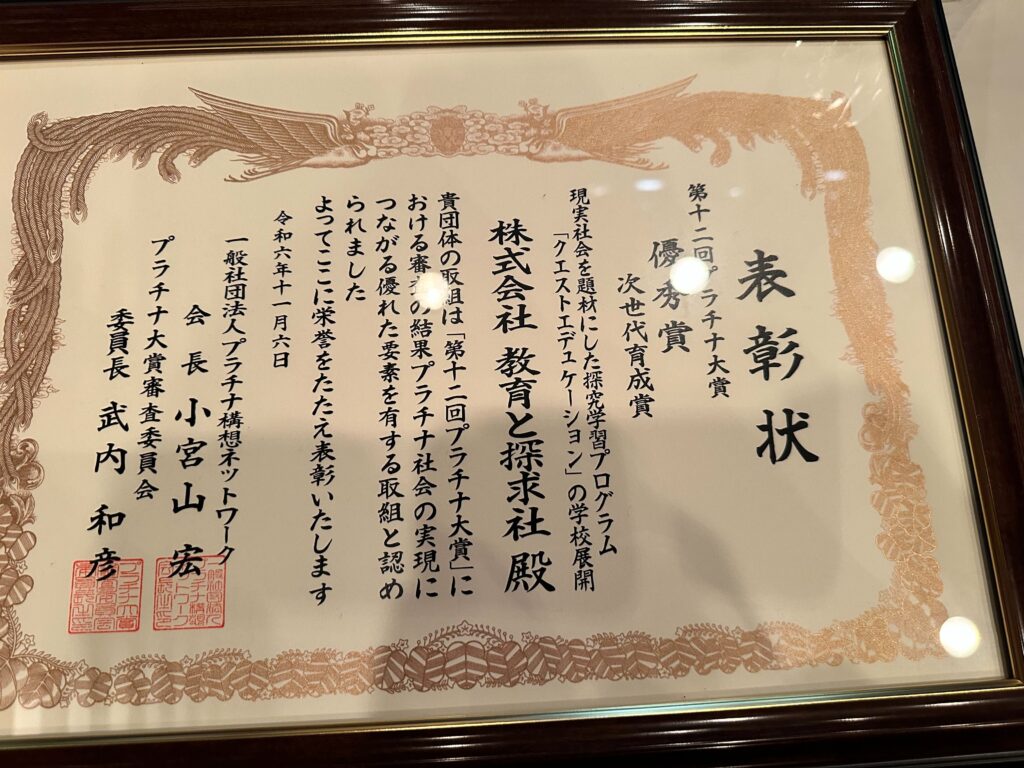 表彰状
第十二回プラチナ大賞
優秀賞
次世代育成賞
現実社会を題材にした探究学習プログラム
「クエストエデュケーション」の学校展開
株式会社 教育と探求社 殿
貴団体の取組は「第十二回プラチナ大賞」に
おける審査の結果プラチナ社会の実現に
つながる優れた要素を有する取組と認め
られました
よってここに栄誉をたたえ表彰いたします
令和六年十一月六日
一般社団法人プラチナ構想ネットワーク
会長 小宮山 宏
プラチナ大賞審査委員会
委員長 武内 和彦